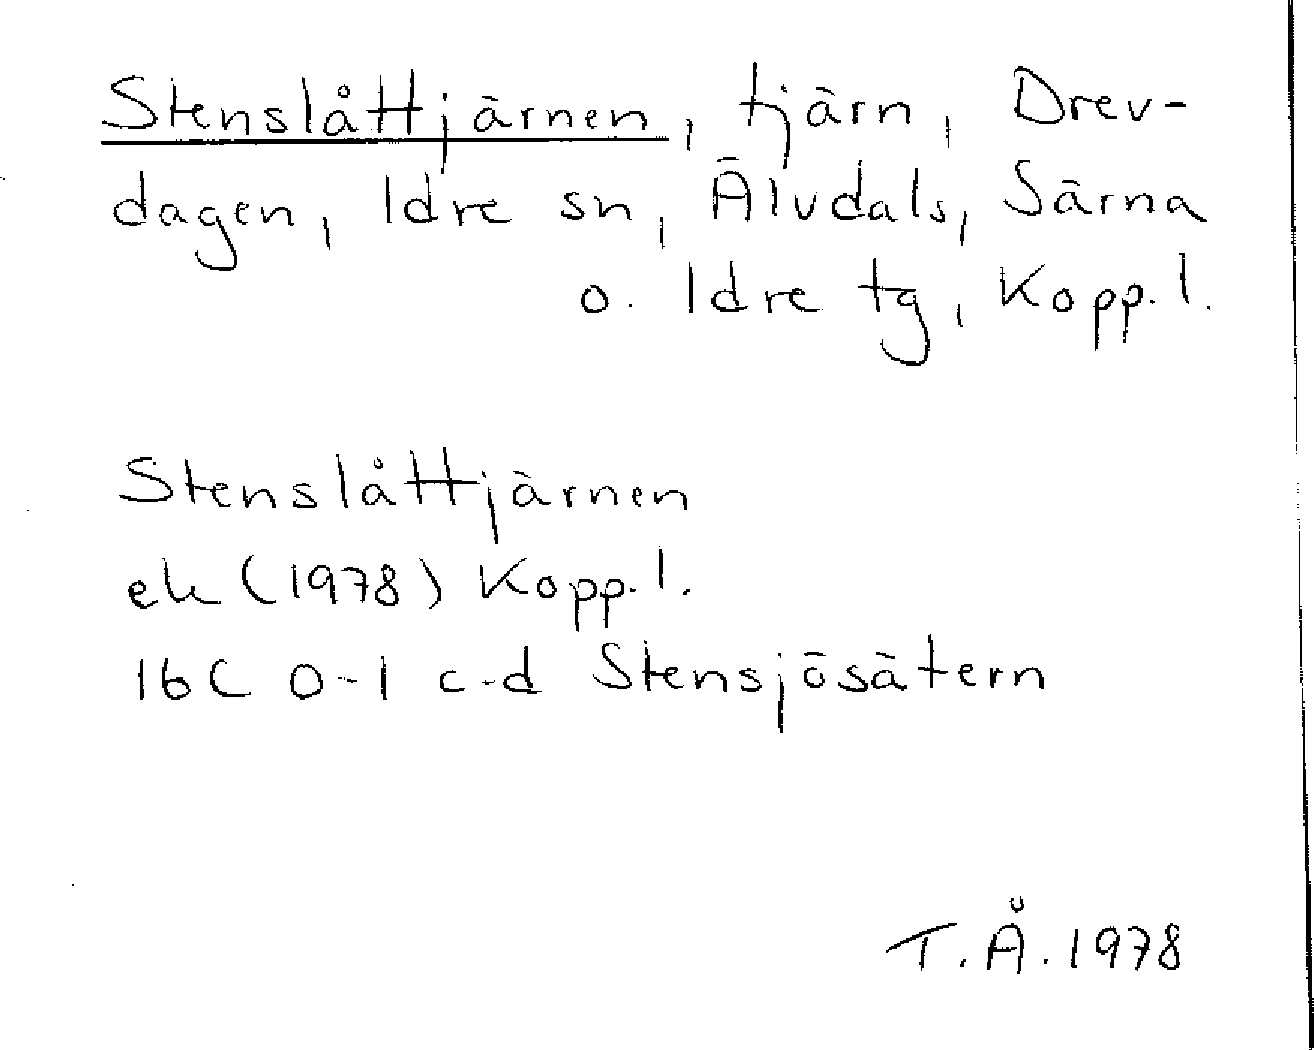 Stenslåttjärnen, tjärn, Drev-
dagen, Idre sn, Älvdals, Särna
o. Idre tg, Kopp. l.
Stenslåttjärnen
ek (1978) Kopp. l.
16C 0-1 c-d Stensjösätern
T. Å. 1978